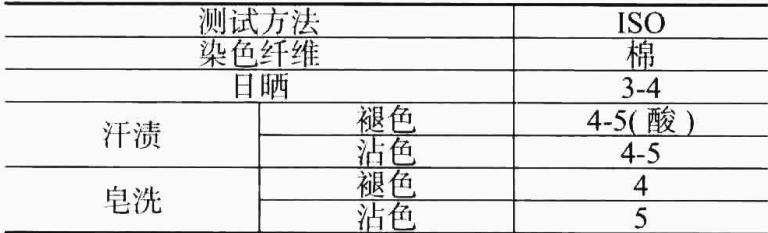 测试方法 ISO
染色纤维 棉
日晒 3-4
汗渍 褪色 4-5(酸)
沾色 4-5
皂洗 褪色 4
沾色 5